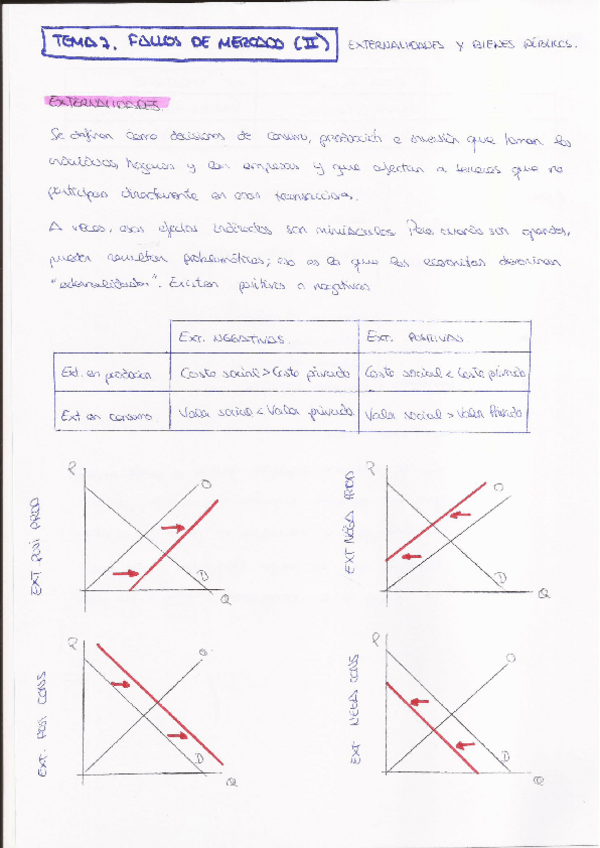 TEMA 7. FALLOS DE MERCADO (II) EXTERNALIDADES Y BIENES PÚBLICOS.
EXTERNALIDADES.
Se definen como decisiones de consumo, producción e inversión que toman los
individuos, hogares y las empresas y que afectan a terceros que no
participan directamente en esas transacciones.
A veces, esos efectos indirectos son minúsculos. Pero cuando son grandes,
pueden resultar problemáticos; eso es lo que los economistas denominan
"externalidades". Existen positivas o negativas
EXT. NEGATIVAS. EXT. POSITIVAS.
Ext. en producción Costo social > Costo privado Costo social < Costo privado
Ext en consumo. Valor social < Valor privado Valor social > Valor Privado
EXT POSI PROD
P
O
D
Q
EXT NEGA PROD
P
O
D
Q
EXT. POSI CONS
P
O
D
Q
EXT NEGA CONS
P
O
D
Q